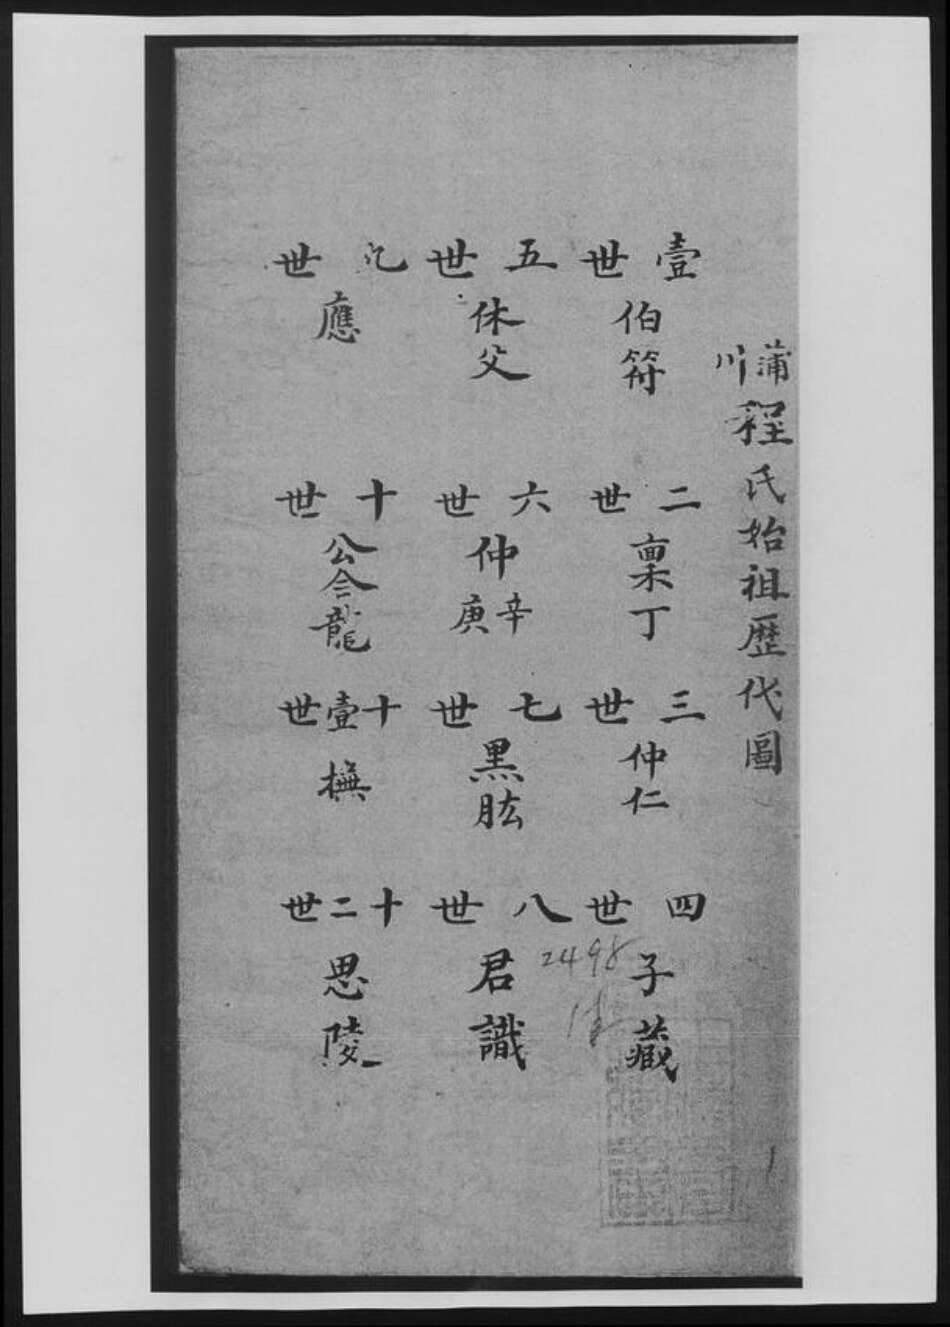 蒲川程氏始祖歷代圖
壹世
伯符
二世
稟丁
三世
仲仁
四世
子藏
五世
休父
六世
仲辛庚
七世
黑肱
八世
君識
九世
應
十世
公會龍
十壹世
橅
十二世
思陵
2498